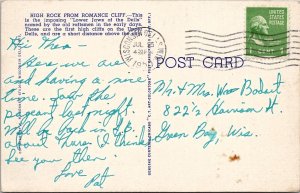 HIGH ROCK FROM ROMANCE CLIFF.—This
is the imposing "Lower Jaws of the Dells"
named by the old raftsmen in the early days.
These are the first high cliffs on the Upper
Dells, and are a short distance above the
Hi Mea—
Here we are
and having a nice
time. Saw the
pageant last night.
Will be home in
about There (I think)
See you then.
Love
Pat
WISCONSIN DELLS
JUL
POST CARD
Mr + Mrs. Wm Bodart
822½ Harrison St.
Green Bay, Wis.